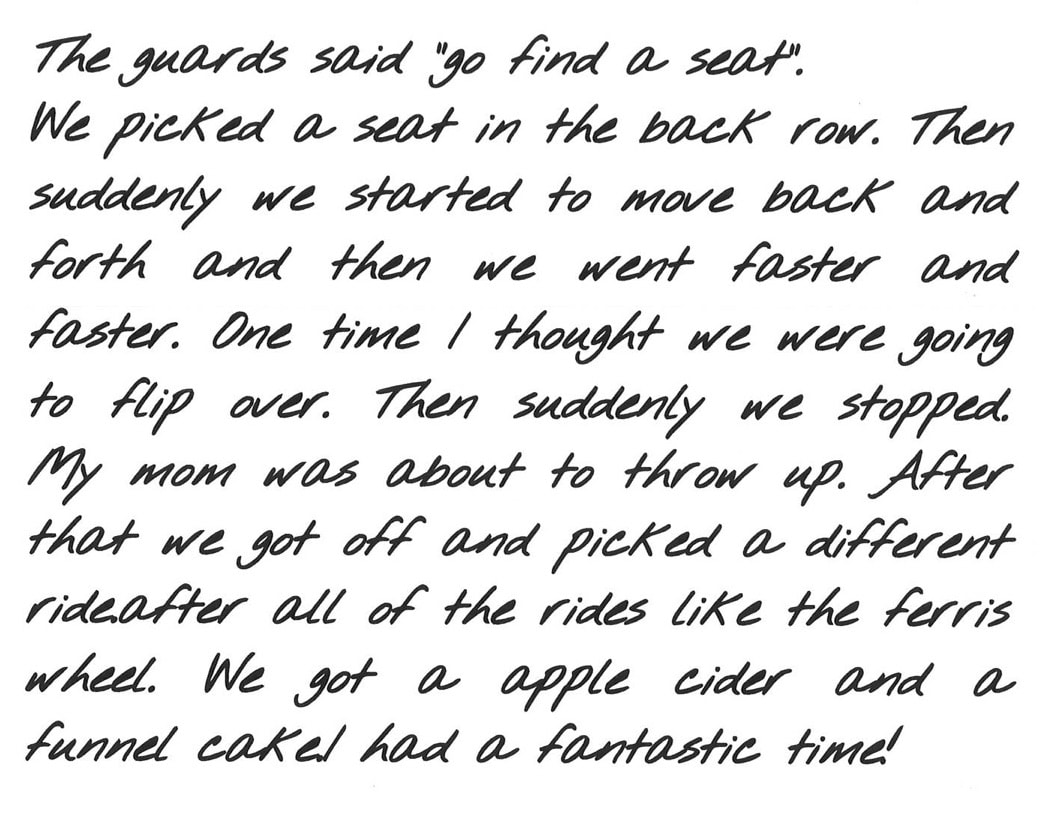 The guards said "go find a seat".
We picked a seat in the back row. Then
suddenly we started to move back and
forth and then we went faster and
faster. One time I thought we were going
to flip over. Then suddenly we stopped.
My mom was about to throw up. After
that we got off and picked a different
ride.after all of the rides like the ferris
wheel. We got a apple cider and a
funnel cake.I had a fantastic time!